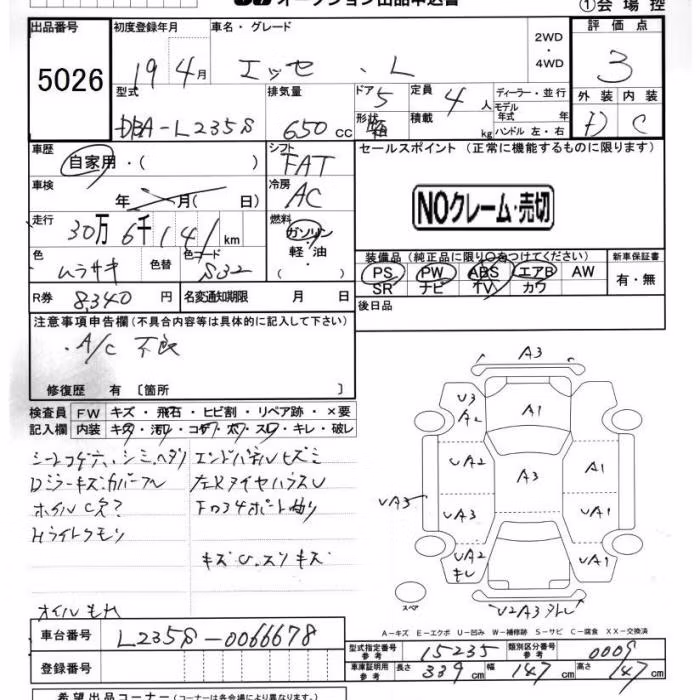 オークション出品申込書
①会場控
出品番号 初度登録年月 車名・グレード 2WD ・ 4WD 評価点
5026 19年 4月 エッセ ・ L 3
型式 排気量 ドア 5 定員 4人 ディーラー・並行 外装 内装
モデル年式 年
DBA-L235S 650cc 形状 箱 積載 kg ハンドル 左・右 D C
車歴 自家用・( ) シフト FAT セールスポイント (正常に機能するものに限ります)
車検 年 月( 日) 冷房 AC
NOクレーム・売切
走行 30万 6千 141km 燃料 ガソリン・軽油・
色 ムラサキ 色替 色コード S32
装備品(純正品に限り○をつけてください) 新車保証書
PS PW ABS エアB AW 有・無
SR ナビ TV カワ
R券 8,340円 名変通知期限 月 日 後日品
注意事項申告欄(不具合内容等は具体的に記入して下さい)
・A/C 不良
修復歴 有 〔箇所 〕
検査員 FW キズ・飛石・ヒビ割・リペア跡・×要
記入欄 内装 キズ・汚レ・コゲ・穴・スレ・キレ・破レ
シートコゲ穴、シミ、ヘタリ エンドパネルヒズミ
Dミラーキズ・カバーナシ
ホイルC欠?
Hライトクモリ
キズU.スリキズ
オイルもれ
A3
U3
A2
A1
UA2
A3
A1
UA5
UA3
UA1
UA2
キレ
UA1
スペア
U2A3ヨレ
A-キズ E-エクボ U-凹み W-補修跡 S-サビ C-腐食 XX-交換済
車台番号 L235S-0066678
型式指定番号 参考 15235 類別区分番号 参考 0009
登録番号
車庫証明用 参考 長さ 339cm 幅 147cm 高さ 147cm
希望出品コーナー(コーナーは各会場により異なります。)